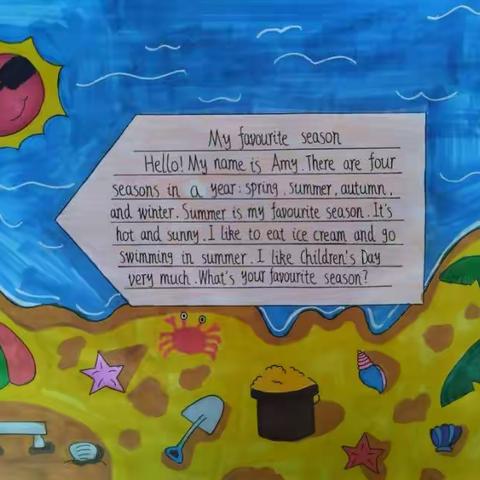 My favourite season
Hello! My name is Amy. There are four
seasons in a year: spring, summer, autumn,
and winter. Summer is my favourite season. It's
hot and sunny. I like to eat ice cream and go
swimming in summer. I like Children's Day
very much. What's your favourite season?